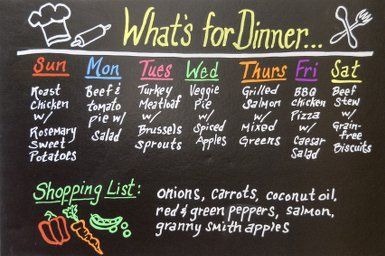 What's for Dinner...
Sun Mon Tues Wed Thurs Fri Sat
Roast
Chicken
w/
Rosemary
Sweet
Potatoes
Beef &
tomato
pie w/
Salad
Turkey
Meatloaf
w/
Brussels
Sprouts
Veggie
Pie
w/
Spiced
Apples
Grilled
Salmon
w/
Mixed
Greens
BBQ
Chicken
Pizza
w/
Caesar
Salad
Beef
Stew
w/
Grain-
free
Biscuits
Shopping List:
onions, carrots, coconut oil,
red & green peppers, salmon,
granny smith apples